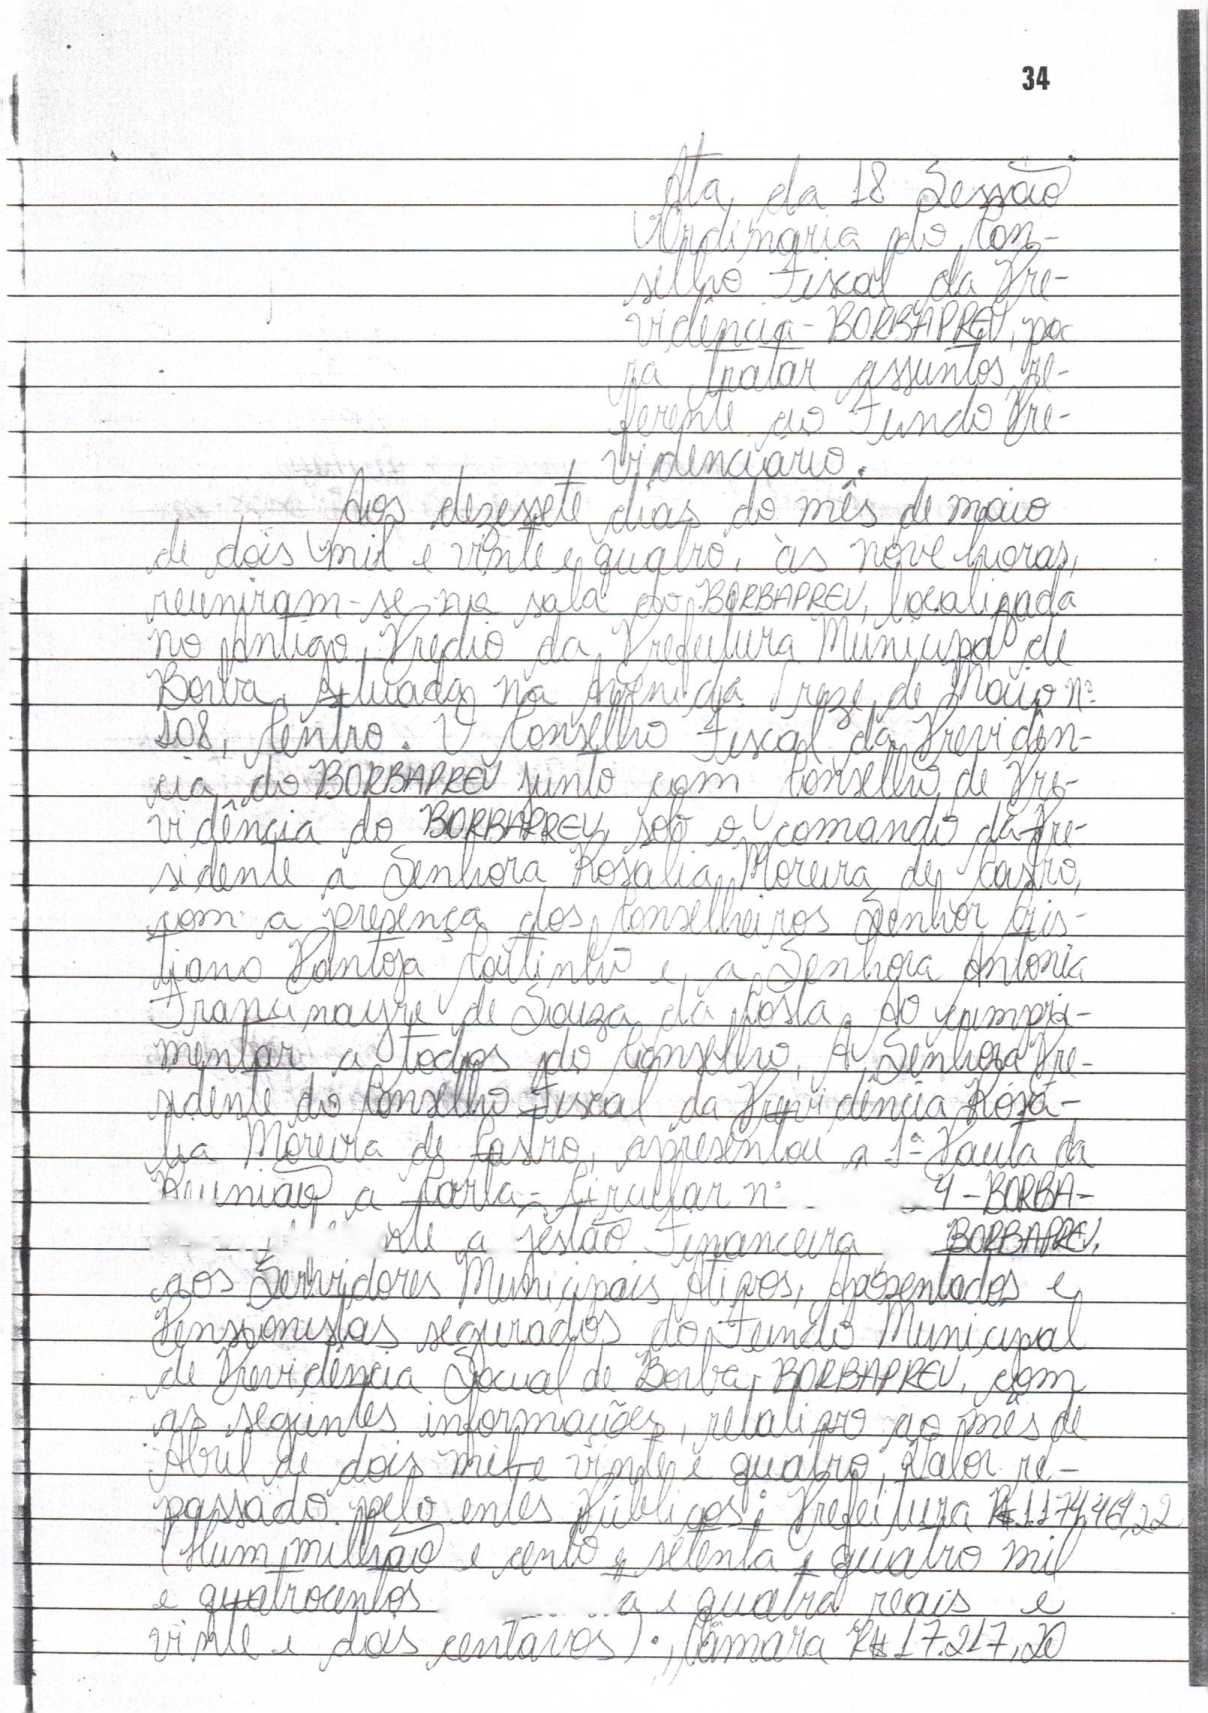 34
Ata da 18 Sessão
Ordinária do Con-
selho Fiscal da Pre-
vidência - BORBAPREV, pa
ra tratar assuntos re-
ferente ao Fundo Pre-
videnciário.
Aos dezessete dias do mês de maio
de dois mil e vinte e quatro, às nove horas,
reuniram-se na sala do BORBAPREV, localizada
no Antigo Prédio da Prefeitura Municipal de
Borba, situada na Avenida Treze de Maio nº
108, Centro. O Conselho Fiscal da Previdên-
cia do BORBAPREV junto com Conselho de Pre-
vidência do BORBAPREV, sob o comando da Pre-
sidente a Senhora Rosália Moreira de Castro,
com a presença dos Conselheiros Senhor Cris-
tiano Pantoja Coutinho e a Senhora Antonia
Francinayre de Souza da Costa, Ao cumpri-
mentar a todos do Conselho, A Senhora Pre-
sidente do Conselho Fiscal da Previdência Rosá-
lia Moreira de Castro, apresentou a 1ª Pauta da
Reunião a Carta-Circular nº 4 - BORBA-
a gestão Financeira BORBAPREV,
aos Servidores Municipais Ativos, Aposentados e
Pensionistas segurados do Fundo Municipal
de Previdência Social de Borba, BORBAPREV, com
as seguintes informações, relativo ao mês de
Abril de dois mil e vinte e quatro, Valor re-
passado pelo entes Públicos: Prefeitura R$ 1.174.464,22
(Hum milhão e cento e setenta e quatro mil
e quatrocentos a e quatro reais e
vinte e dois centavos); Câmara R$ 17.217,20